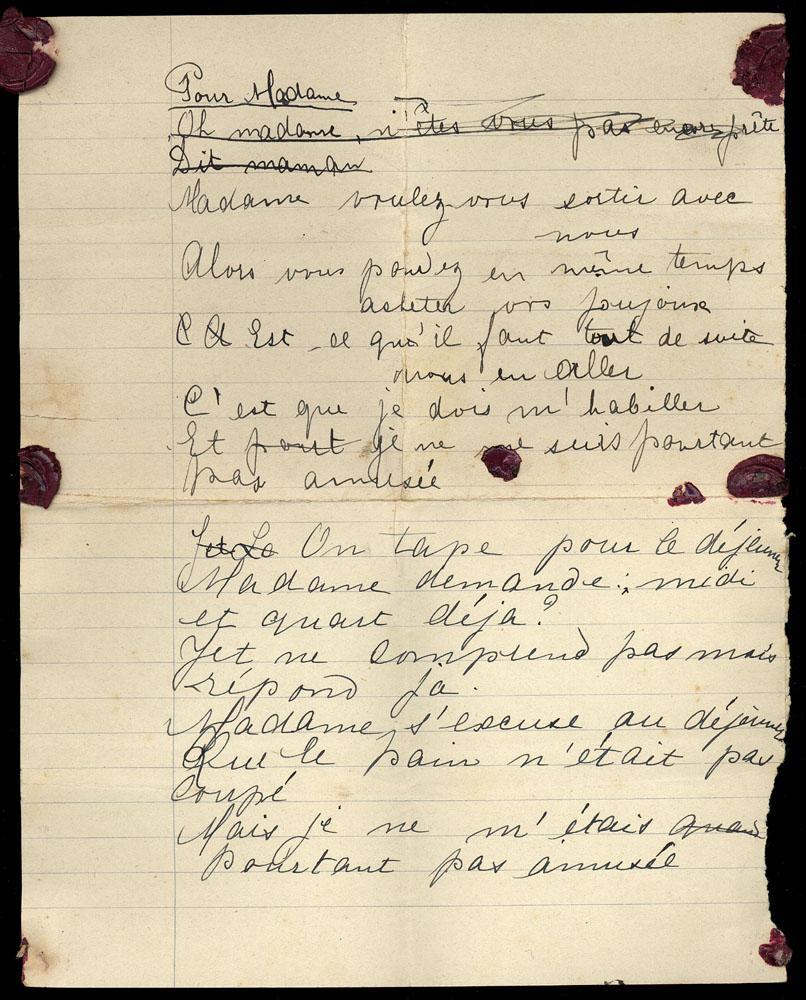 Pour Madame
Oh madame, n'êtes vous pas encore prête
Dit maman
Madame voulez-vous sortir avec
nous
Alors vous pouvez en même temps
acheter vos joujoux
Est-ce qu'il faut tout de suite
nous en aller
C'est que je dois m'habiller
Et pourt je ne me suis pourtant
pas amusée
On tape pour le déjeuner
Madame demande: midi
et quart déjà?
Jet ne comprend pas mais
répond ja.
Madame s'excuse au déjeuner
Que le pain n'était pas
coupé
Mais je ne m'étais quand
pourtant pas amusée